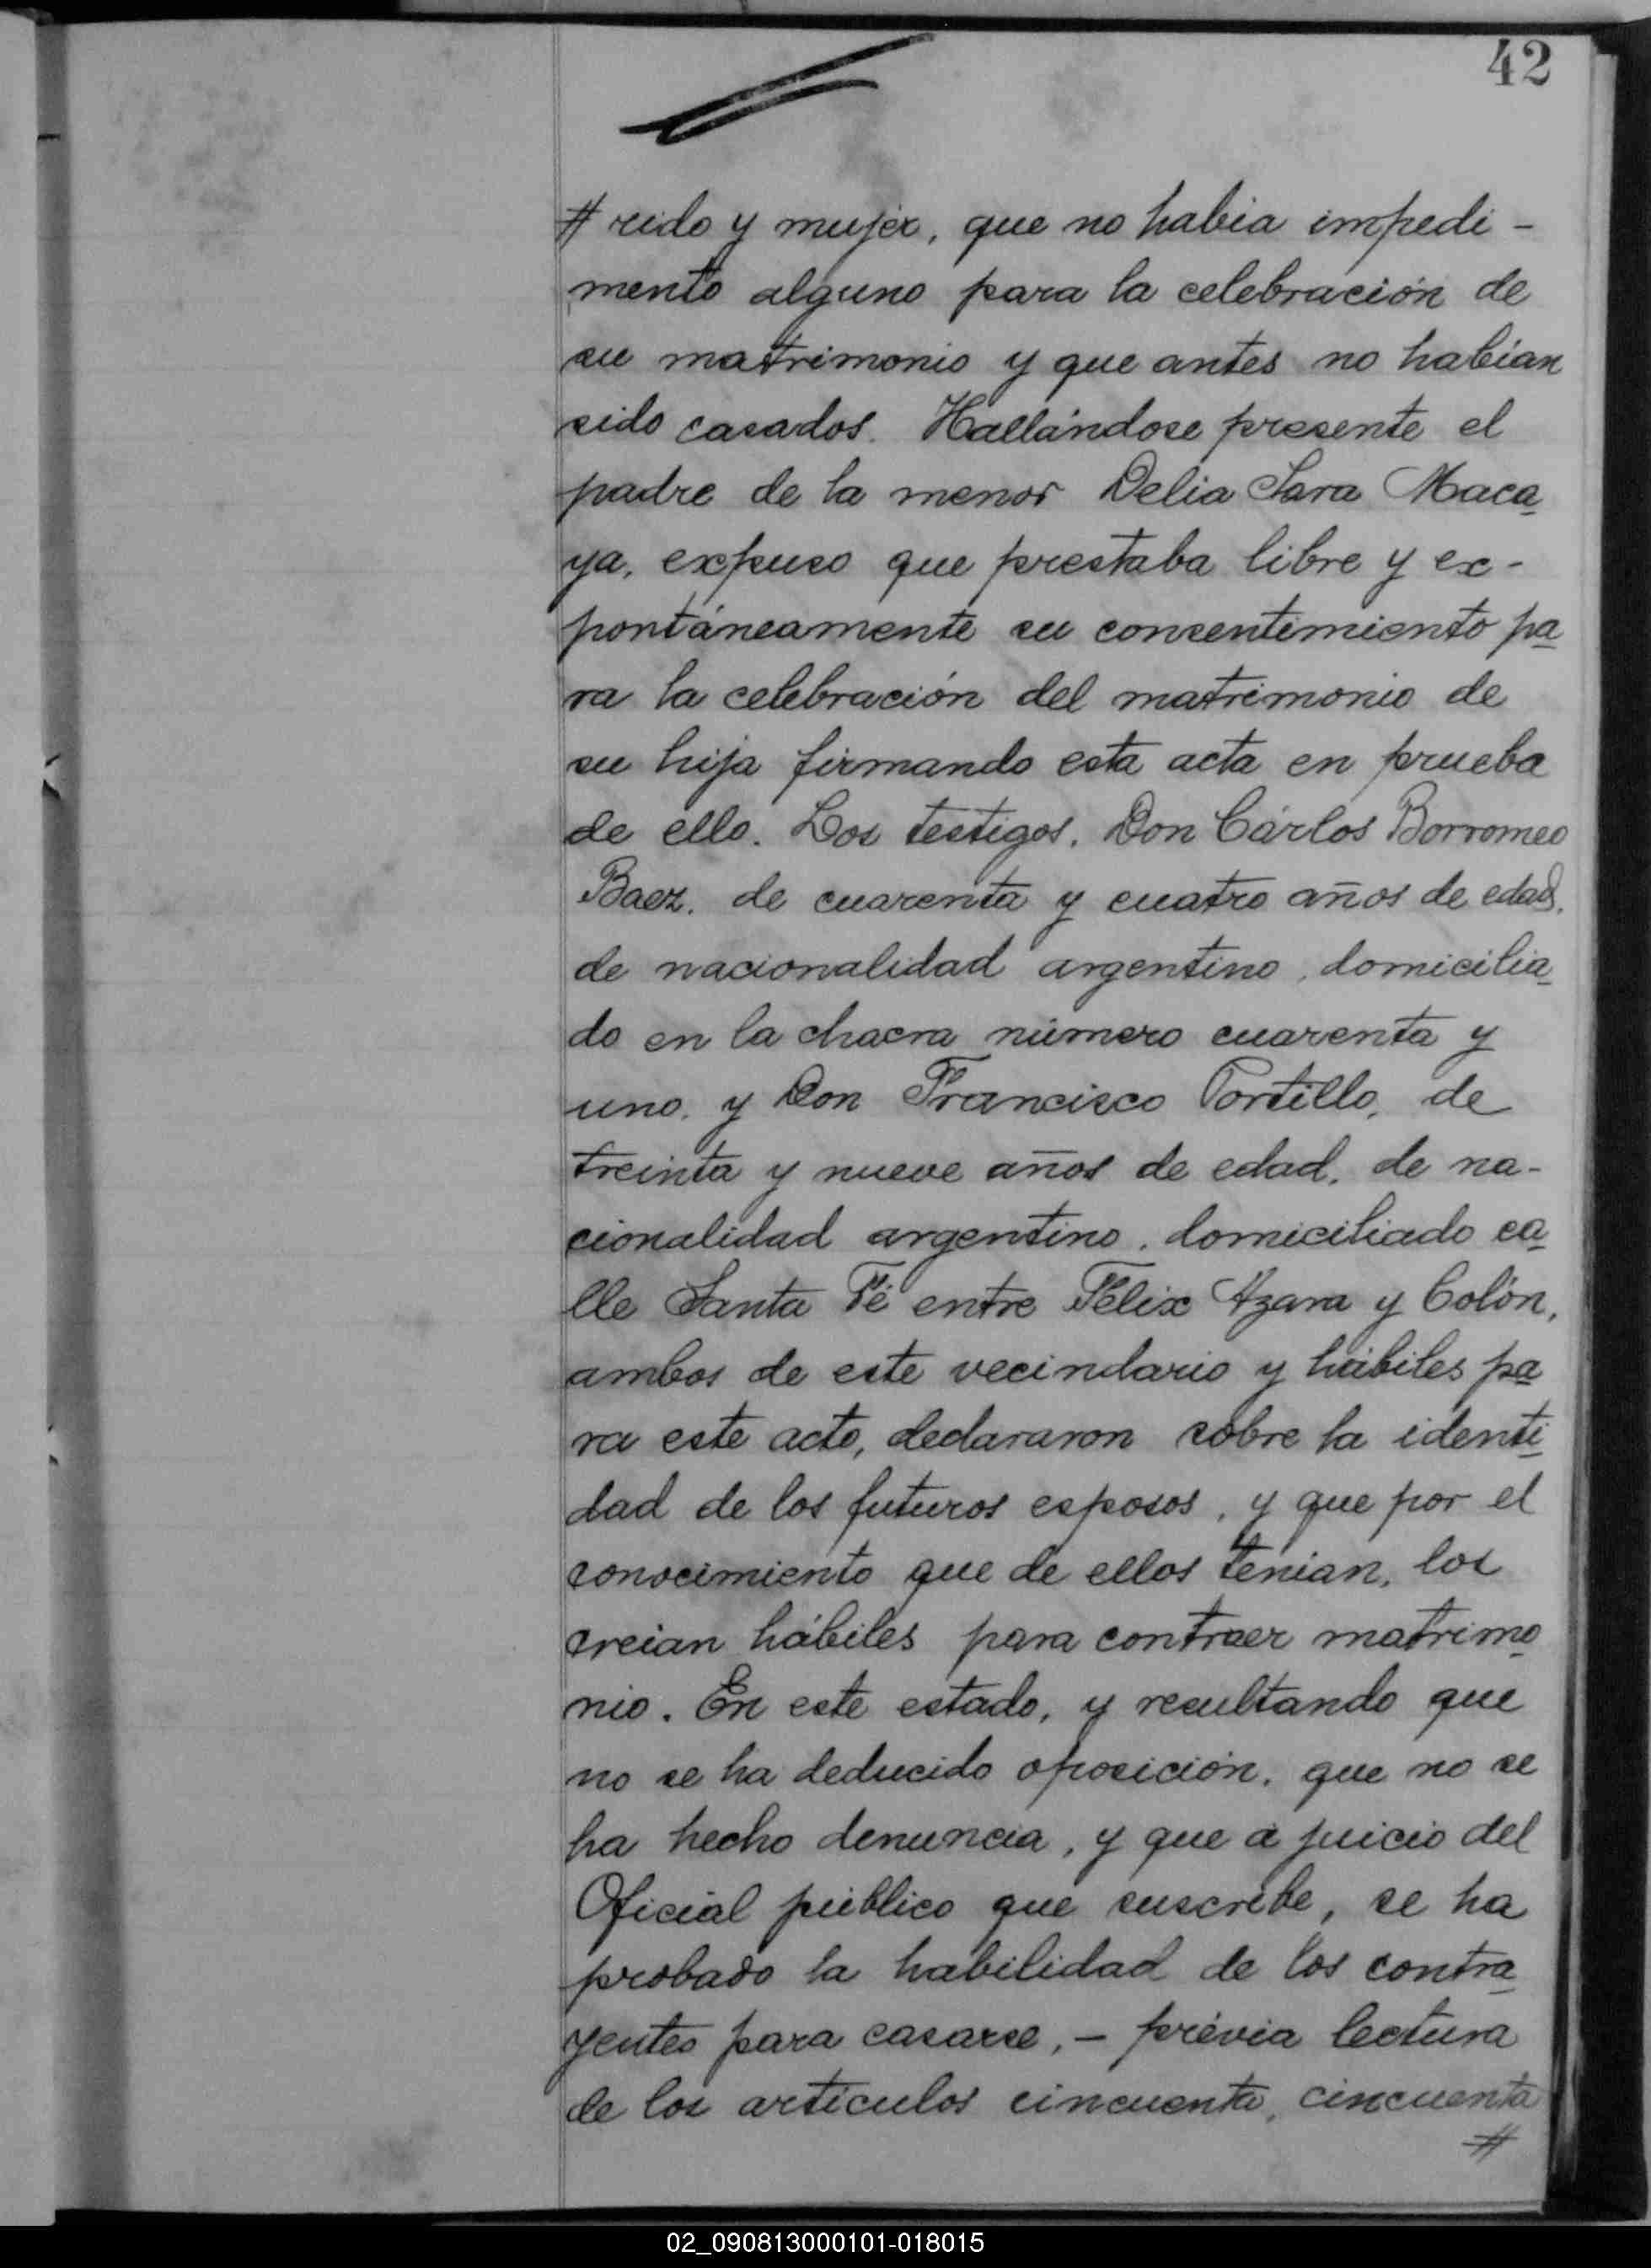 42
# rido y mujer, que no habia impedi-
mento alguno para la celebración de
su matrimonio y que antes no habían
sido casados. Hallándose presente el
padre de la menor Delia Sara Maca
ya, expuso que prestaba libre y ex-
pontáneamente su consentimiento pa
ra la celebración del matrimonio de
su hija firmando esta acta en prueba
de ello. Los testigos, Don Cárlos Borromeo
Baez, de cuarenta y cuatro años de edad,
de nacionalidad argentino, domicilia
do en la chacra número cuarenta y
uno, y Don Francisco Portillo, de
treinta y nueve años de edad, de na-
cionalidad argentino, domiciliado ca
lle Santa Fé entre Félix Azara y Colón,
ambos de este vecindario y hábiles pa
ra este acto, declararon sobre la identi
dad de los futuros esposos, y que por el
conocimiento que de ellos tenian, los
creian hábiles para contraer matrimo
nio. En este estado, y resultando que
no se ha deducido oposición, que no se
ha hecho denuncia, y que á juicio del
Oficial público que suscribe, se ha
probado la habilidad de los contra
yentes para casarse, - prévia lectura
de los artículos cincuenta, cincuenta
#
02_090813000101-018015